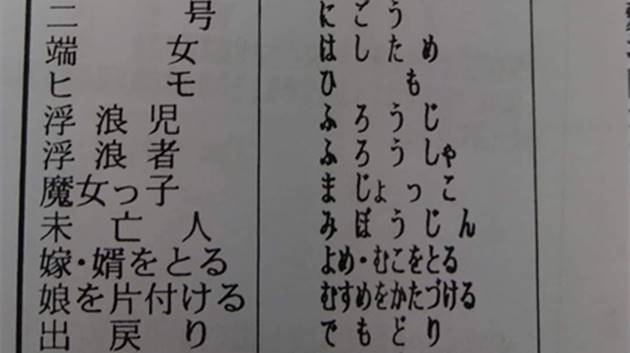 二号 にごう
端女 はしため
ヒモ ひも
浮浪児 ふろうじ
浮浪者 ふろうしゃ
魔女っ子 まじょっこ
未亡人 みぼうじん
嫁・婿をとる よめ・むこをとる
娘を片付ける むすめをかたづける
出戻り でもどり